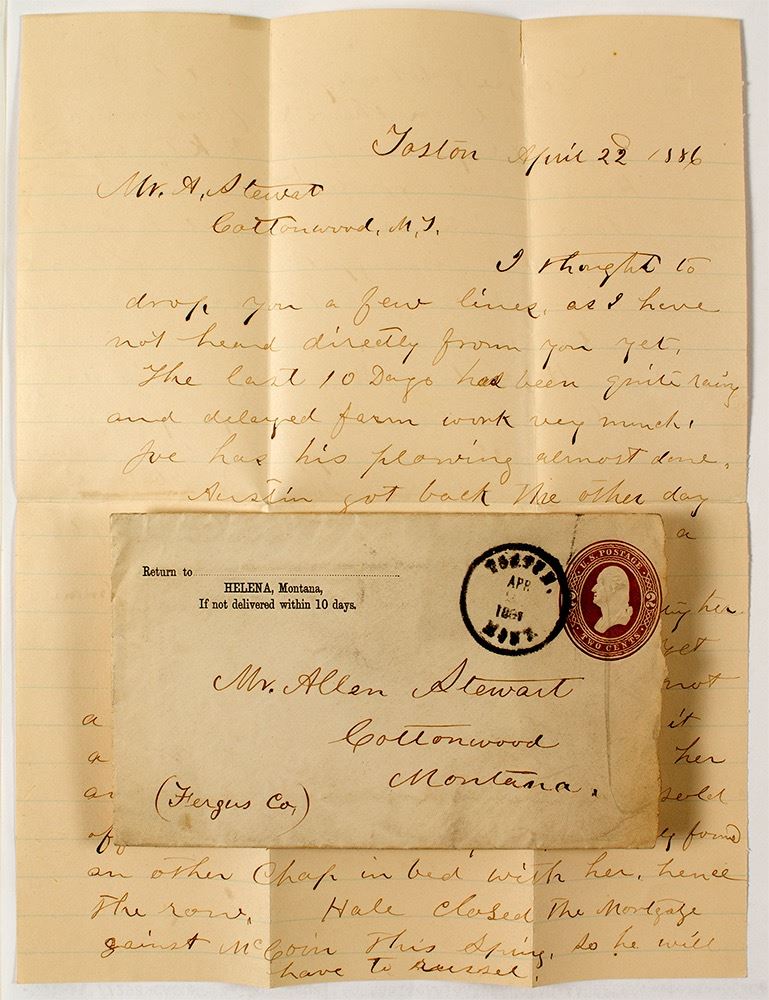 Toston April 22 1886
Mr. A. Stewat
Cottonwood, M,T.
I thought to
drop you a few lines, as I have
not heard directly from you yet,
The last 10 Days has been quite rainy
and delayed farm work very much,
Joe has his plowing almost done,
Austin got back the other day
a
her.
yet
not
a it
a her
sold
of found
an other Chap in bed with her, hence
the row, Hale closed the Mortgage
gainst McCoin This Spring, so he will
have to
Return to
HELENA, Montana,
If not delivered within 10 days.
TOSTON,
APR
MONT
U.S. POSTAGE
2
TWO CENTS
Mr. Allen Stewart
Cottonwood
Montana,
(Fergus Co,)